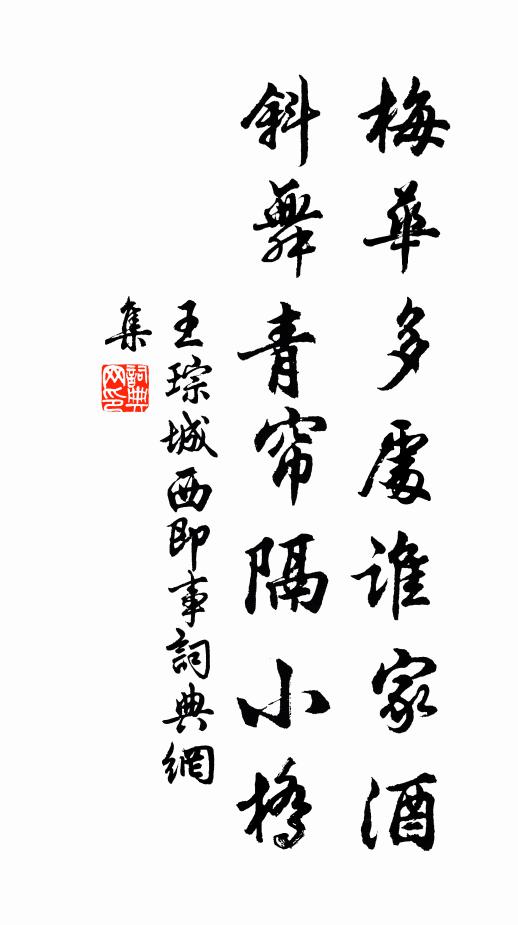 梅華多處誰家酒
斜舞青帘隔小橋
王琮城西即事詞典網
集
詞典
网印